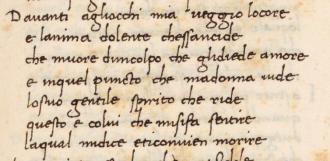 Davanti agliocchi mia veggio locore
e lanima dolente chessancide
che muore duncolpo che glidiede amore
e inquel punto che madonna vide
losuo gentile spirito che ride
questo e colui che misifa sentire
laqual midice eticonvien morire